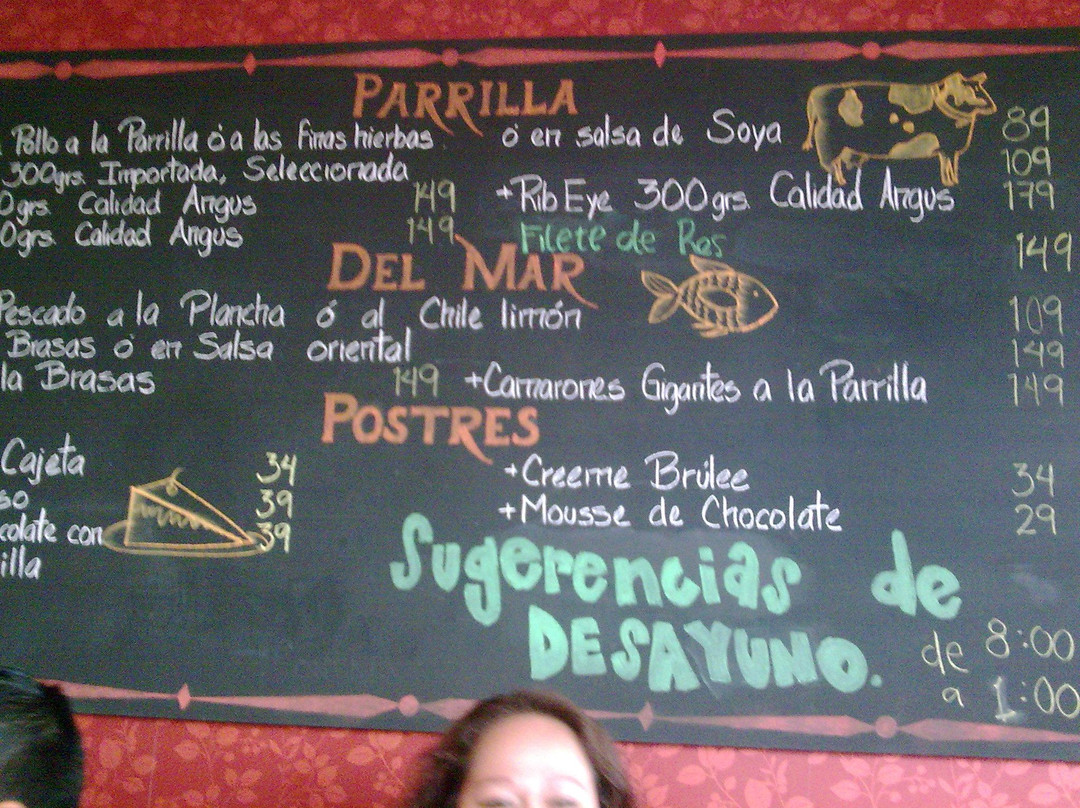 PARRILLA
Pollo a la Parrilla ó a las Finas hierbas ó en salsa de Soya 89
300grs. Importada, Seleccionada 109
0grs. Calidad Angus 149 +Rib Eye 300grs. Calidad Angus 179
0grs. Calidad Angus 149 Filete de Res 149
DEL MAR
Pescado a la Plancha ó al Chile limón 109
Brasas ó en Salsa oriental 149
la Brasas 149 +Camarones Gigantes a la Parrilla 149
POSTRES
Cajeta 34 +Creeme Brúlee 34
so 39 +Mousse de Chocolate 29
colate con 39
illa
Sugerencias de
DESAYUNO.
de 8:00
a 1:00